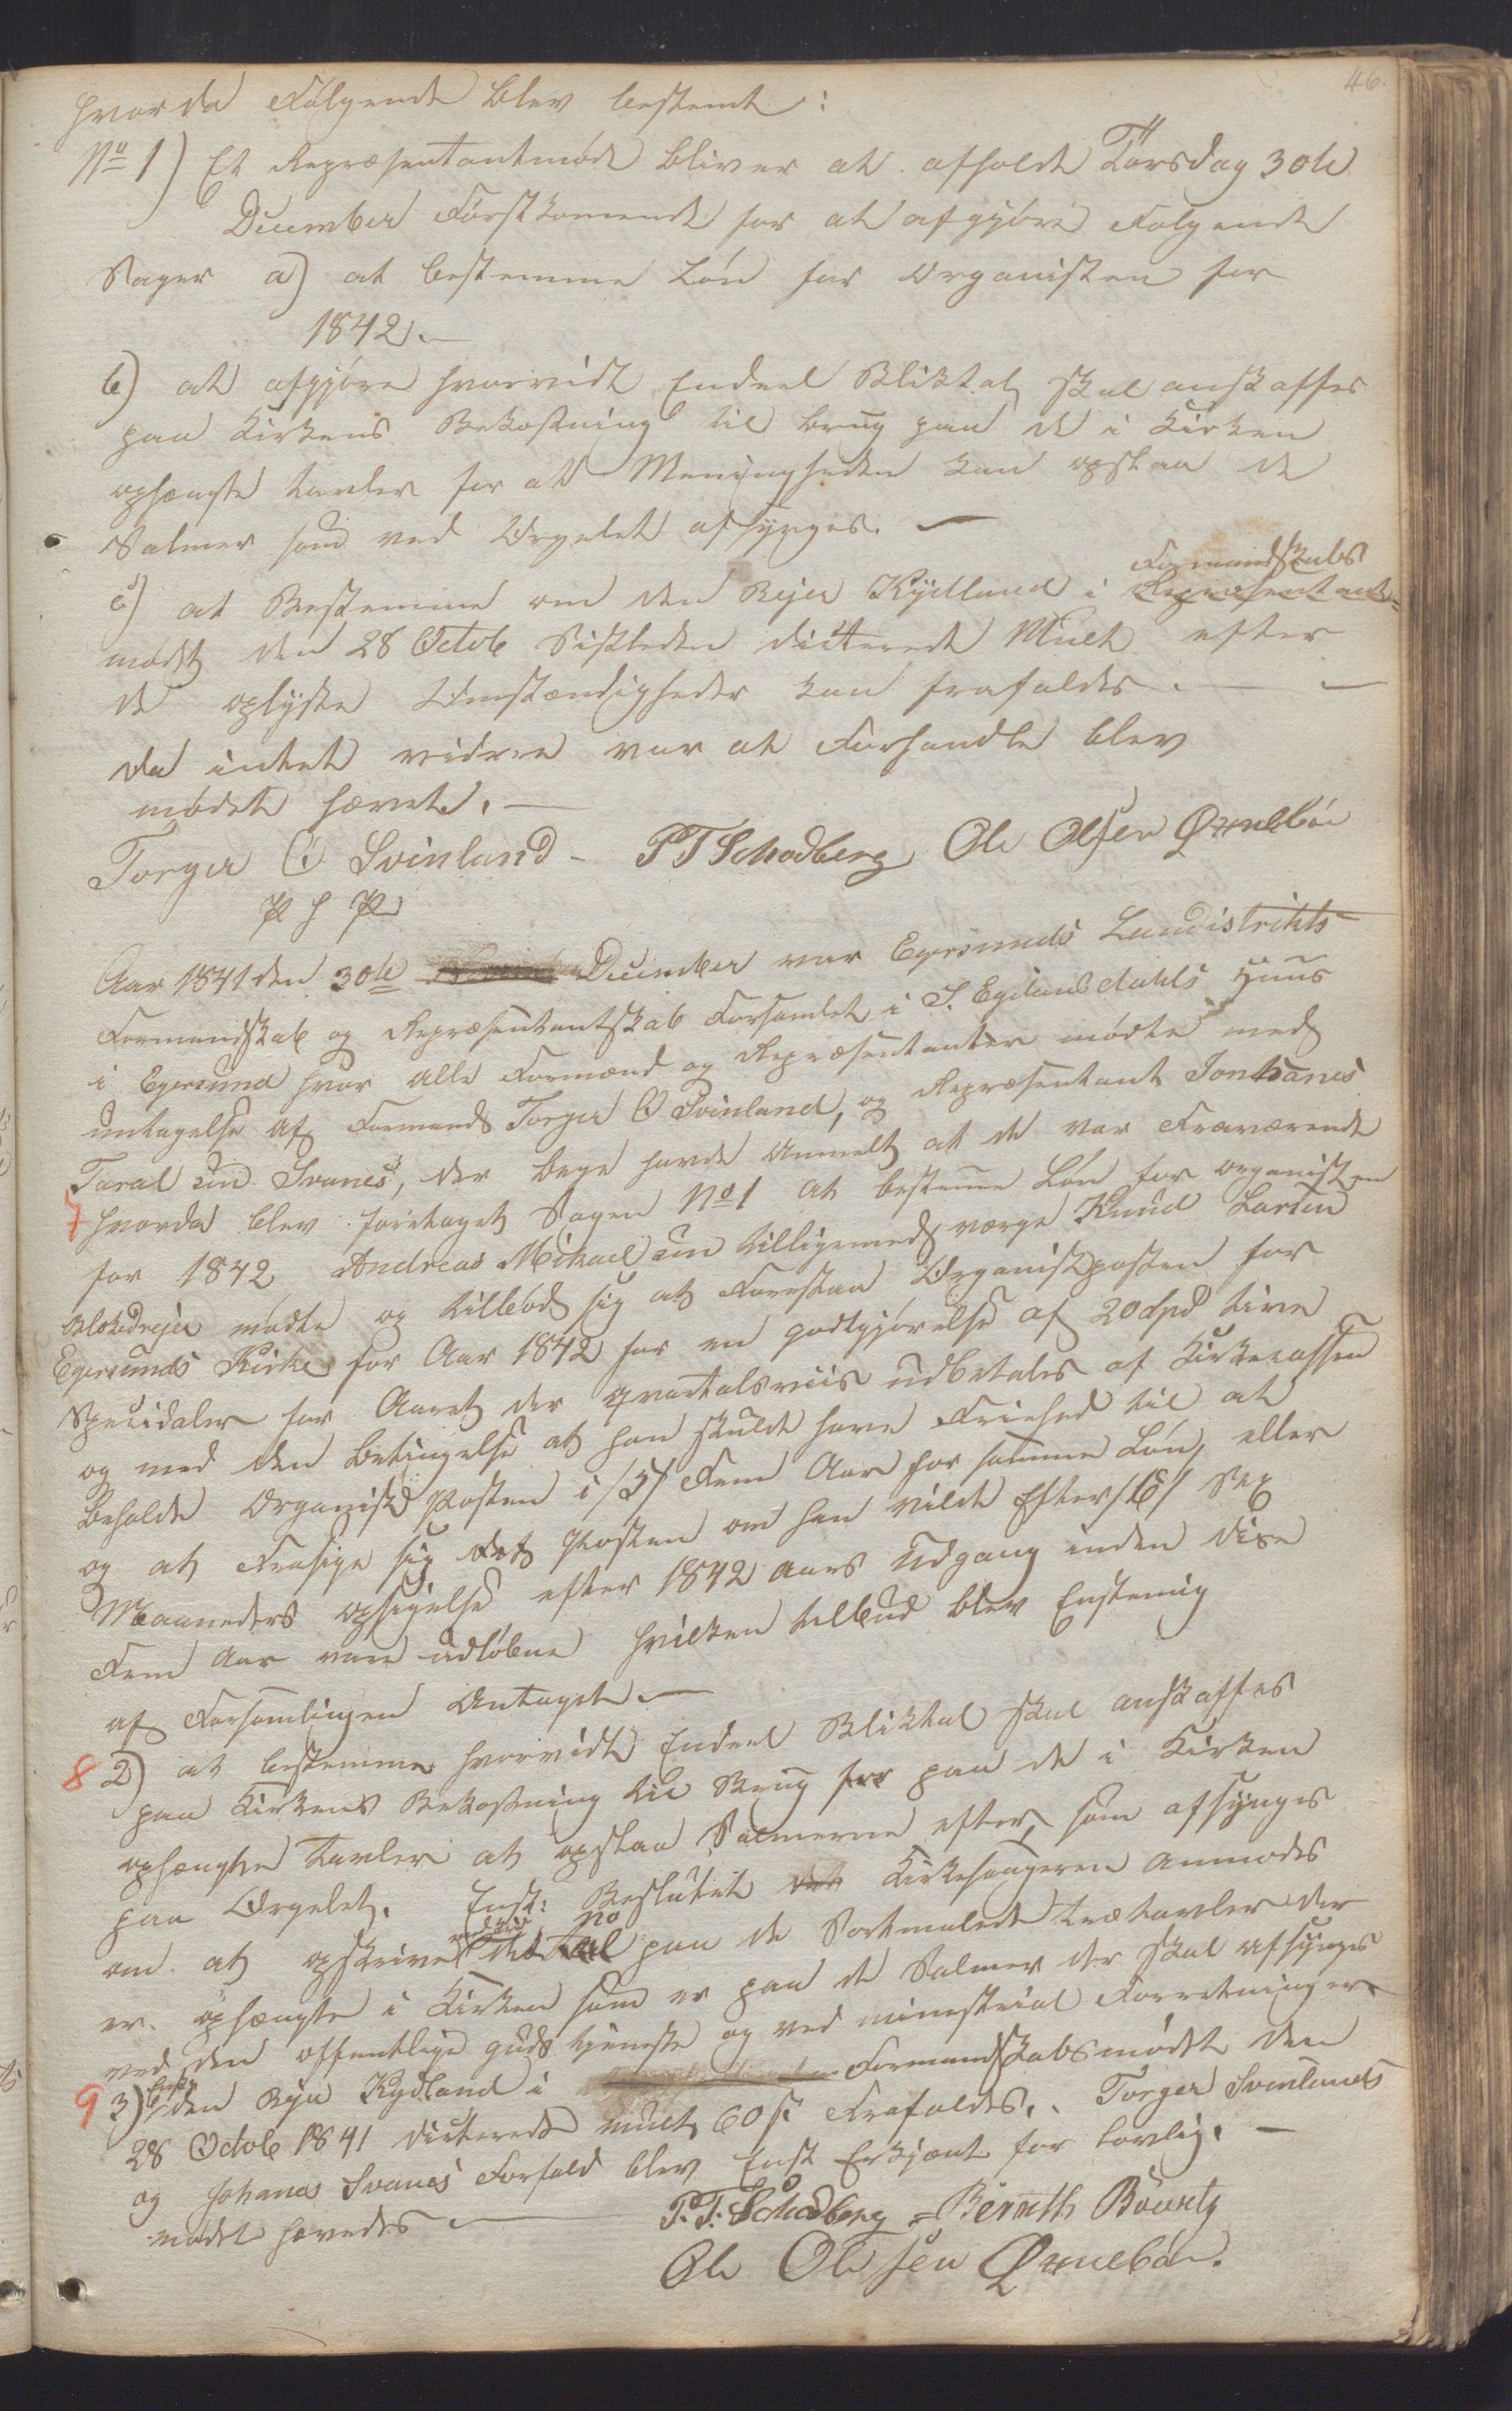 46.
hvor da Følgende blev bestemt:
No 1) Et Repræsentantmøde bliver at afholde Torsdag 30te
December Førstkomende for at afgjøre Følgende
Sager a) at bestemme Løn for Organisten for
1842.
b) at afgjøre hvorvidt Endeel Bliktal skal anskaffes
paa Kirkens Bekostning til brug paa de i Kirken
ophængte tavler for at Meenigheden kan opslaa de
Salmer som ved Orgelet afsynges. —
Formandskabs
c) at Bestemme om den Rejer Kydland i Repræsentant=
mødet den 28 Octob Sistleden dicterede Mult efter
de oplyste Omstændigheder kan frafaldes. —
da intet videre var at Forhandle blev
mødet hævet. —
Torger O Svinland - P T Schodberg Ole Olsen Ørnebøe
Aar 1841 den 30te December var Egersunds Landistrikts
Formandskab og Repræsentantskab Forsamlet i S. Egelandsdahls Huus
i Egersund hvor alle Formænd og Repræsentanter mødte med
untagelse af Formand Torger O Svinland, og Repræsentant Johanes
Taral sen Svanes, der bege havde Anmelt at de var Fraværende
7 hvorda blev foretaget Sagen No 1 at bestemme Løn for organisten
for 1842 Andreas Mikael sen tilligemed verge Knud Larsen
Blokdrejer mødte og tilbød sig at Forestaa Organistposten for
Egersunds Kirke for Aar 1842 for en godtgjørelse af 20 Spd tive
Speciedaler for Aaret der qvartalsviis udbetales af Kirkecassen
og med den betingelse at han skulde have Friehed til at
Beholde Organist Posten i /5/ Fem Aar for samme Løn, eller
og at Frasige sig Posten om han vilde Efter /6/ Sex
Maaneders opsigelse efter 1842 Aars Udgang inden dise
Fem Aar vare udløbne hvilken tilbud blev Enstemig
af Forsamlingen Antaget. —
8 2) at bestemme hvorvidt Endeel Bliktal skal anskaffes
paa Kirkens Bekostning til Brug for paa de i Kirken
ophængte tavler at opslaa Salmerne efter, som afsynges
paa Orgelet. Enst: Beslutet Kirkesangeren anmodes
om at opskrive No paa de Sortmalede trætavler der
er ophængte i Kirken som er paa de Salmer der skal afsynges
ved den offentlige guds tjeneste og ved ministrial Forretninger.
9 3) den Rejer Kydland i Formandskabsmødet den
28 Octob 1841 dicterede mult 60 s Frafaldes. Torger Svinlands
og Johanes Svanes Forfald blev Enst Erkjænt for lovlig. —
mødet hævedes —
P. T. Schodberg = Bernth Böwetz
Ole Olsen Ørnebøe.